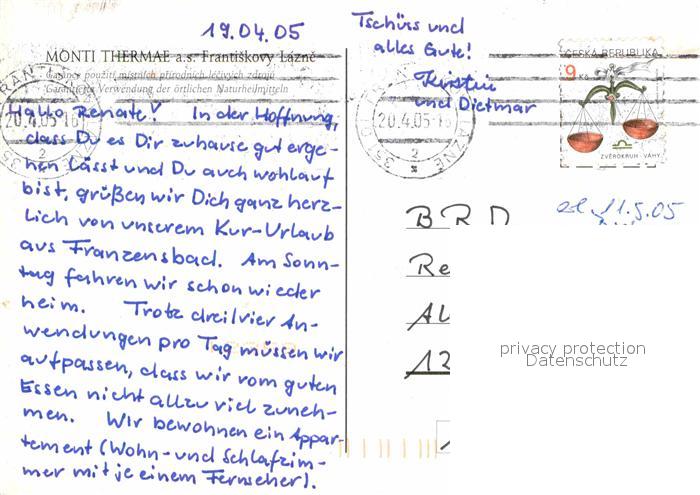 19.04.05
MONTI THERMAE a.s. Františkovy Lázně
Garance použití místních přírodních léčivých zdrojů
Garantierte Verwendung der örtlichen Naturheilmitteln
Hallo Renate! In der Hoffnung,
dass Du es Dir zuhause gut erge-
hen lässt und Du auch wohlauf
bist, grüßen wir Dich ganz herz-
lich von unserem Kur-Urlaub
aus Franzensbad. Am Sonn-
tag fahren wir schon wieder
heim. Trotz drei/vier An-
wendungen pro Tag müssen wir
aufpassen, dass wir vom guten
Essen nicht allzu viel zuneh-
men. Wir bewohnen ein Appar-
tement (Wohn- und Schlafzim-
mer mit je einem Fernseher).
Tschüss und
alles Gute!
Kirstin
und Dietmar
ČESKÁ REPUBLIKA
9 Kč
ZVĚROKRUH - VÁHY
20.4.05-10
2
20.4.05-1
351 01
LÁZNĚ
2
11.5.05
BRD
Re
Al
12
privacy protection
Datenschutz